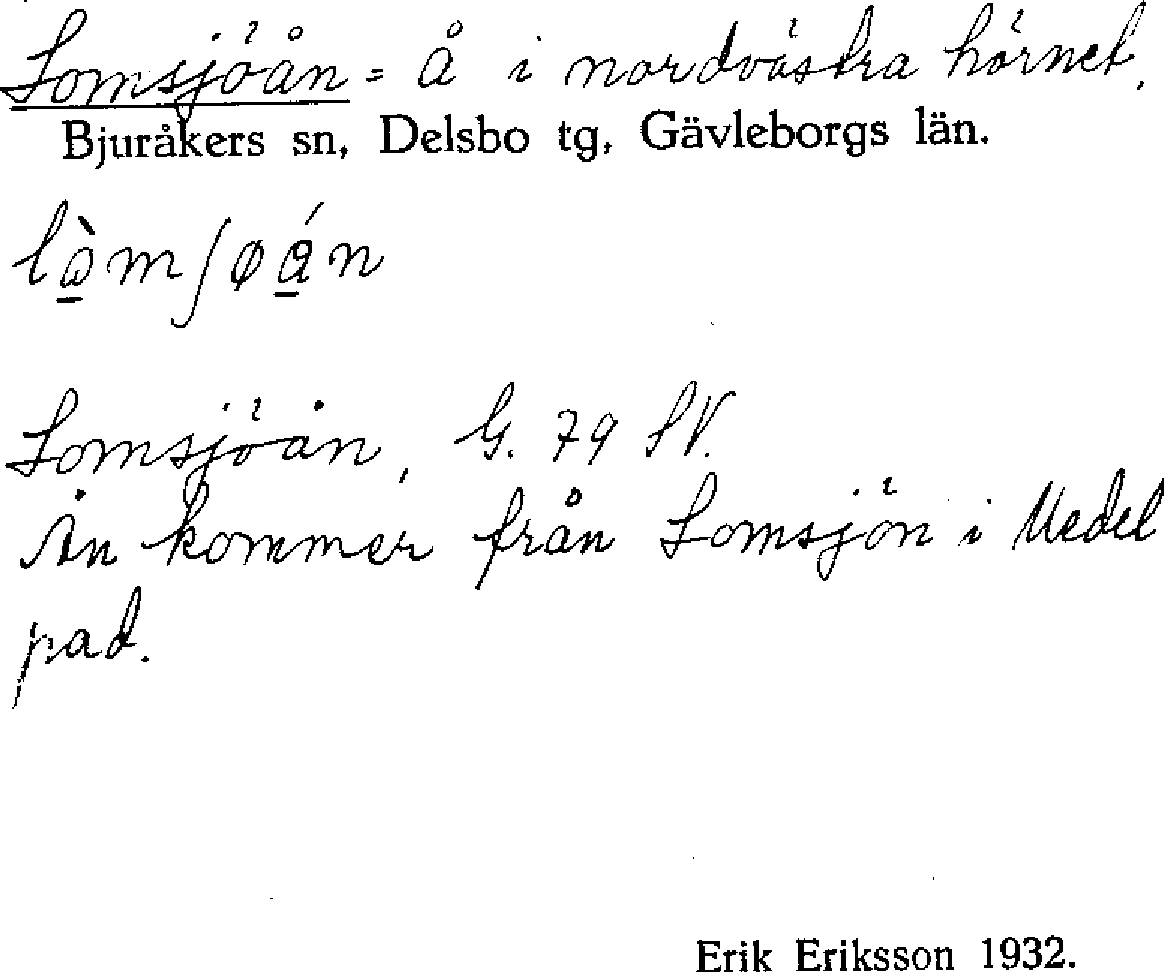 Lomsjöån = Å i nordvästra hörnet,
Bjuråkers sn, Delsbo tg, Gävleborgs län.
Lomsjöån, G. 79 SV.
Ån kommer från Lomsjön i Medel
pad.
Erik Eriksson 1932.